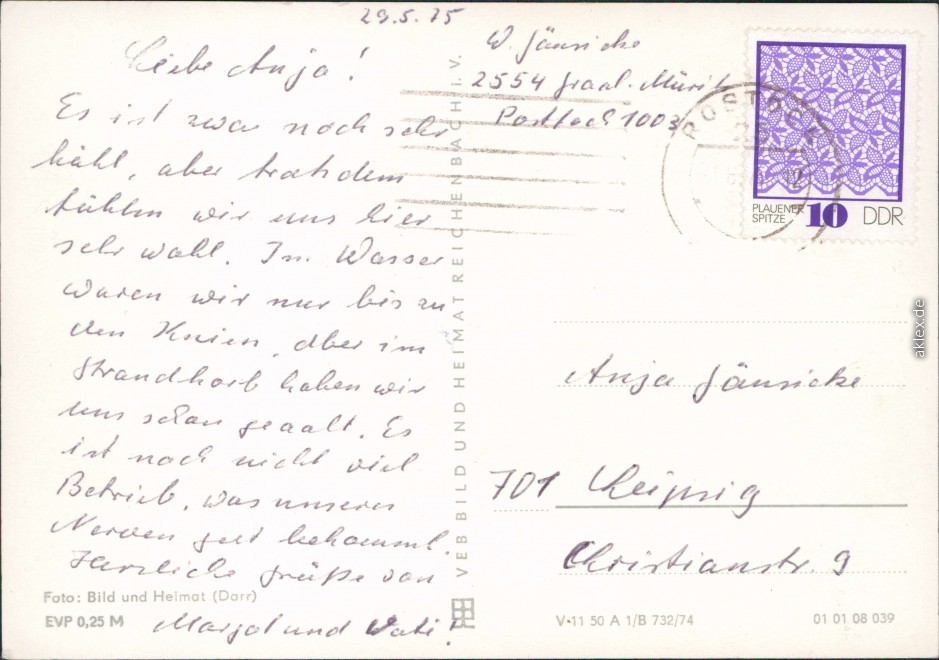 29.5.75
Liebe Anja!
Es ist zwar noch sehr
kühl, aber trotzdem
fühlen wir uns hier
sehr wohl. Im Wasser
waren wir nur bis zu
den Knien, aber im
Strandkorb haben wir
uns schon geaalt. Es
ist noch nicht viel
Betrieb, was unseren
Nerven gut bekommt.
Herzliche Grüße von
Margot und Vati!
Foto: Bild und Heimat (Darr)
EVP 0,25 M
VEB BILD UND HEIMAT REICHENBACH I. V.
W. Jänsicke
2554 Graal-Müritz
Postfach 1003
ROSTOCK
12
PLAUENER
SPITZE
10 DDR
Anja Jänsicke
701 Leipzig
Christianstr. 9
V·11 50 A 1/B 732/74
01 01 08 039
aklex.de